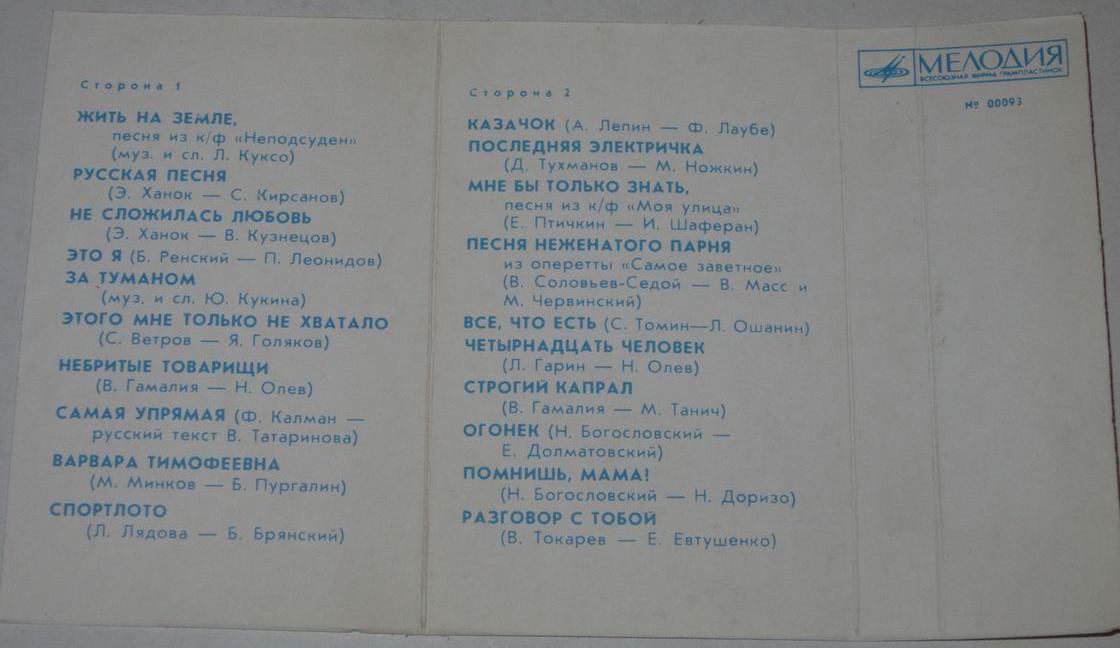 Сторона 1
ЖИТЬ НА ЗЕМЛЕ,
песня из к/ф «Неподсуден»
(муз. и сл. Л. Куксо)
РУССКАЯ ПЕСНЯ
(Э. Ханок — С. Кирсанов)
НЕ СЛОЖИЛАСЬ ЛЮБОВЬ
(Э. Ханок — В. Кузнецов)
ЭТО Я (Б. Ренский — П. Леонидов)
ЗА ТУМАНОМ
(муз. и сл. Ю. Кукина)
ЭТОГО МНЕ ТОЛЬКО НЕ ХВАТАЛО
(С. Ветров — Я. Голяков)
НЕБРИТЫЕ ТОВАРИЩИ
(В. Гамалия — Н. Олев)
САМАЯ УПРЯМАЯ (Ф. Калман —
русский текст В. Татаринова)
ВАРВАРА ТИМОФЕЕВНА
(М. Минков — Б. Пургалин)
СПОРТЛОТО
(Л. Лядова — Б. Брянский)
Сторона 2
КАЗАЧОК (А. Лепин — Ф. Лаубе)
ПОСЛЕДНЯЯ ЭЛЕКТРИЧКА
(Д. Тухманов — М. Ножкин)
МНЕ БЫ ТОЛЬКО ЗНАТЬ,
песня из к/ф «Моя улица»
(Е. Птичкин — И. Шаферан)
ПЕСНЯ НЕЖЕНАТОГО ПАРНЯ
из оперетты «Самое заветное»
(В. Соловьев-Седой — В. Масс и
М. Червинский)
ВСЕ, ЧТО ЕСТЬ (С. Томин—Л. Ошанин)
ЧЕТЫРНАДЦАТЬ ЧЕЛОВЕК
(Л. Гарин — Н. Олев)
СТРОГИЙ КАПРАЛ
(В. Гамалия — М. Танич)
ОГОНЕК (Н. Богословский —
Е. Долматовский)
ПОМНИШЬ, МАМА!
(Н. Богословский — Н. Доризо)
РАЗГОВОР С ТОБОЙ
(В. Токарев — Е. Евтушенко)
МЕЛОДИЯ
ВСЕСОЮЗНАЯ ФИРМА ГРАМПЛАСТИНОК
№ 00093